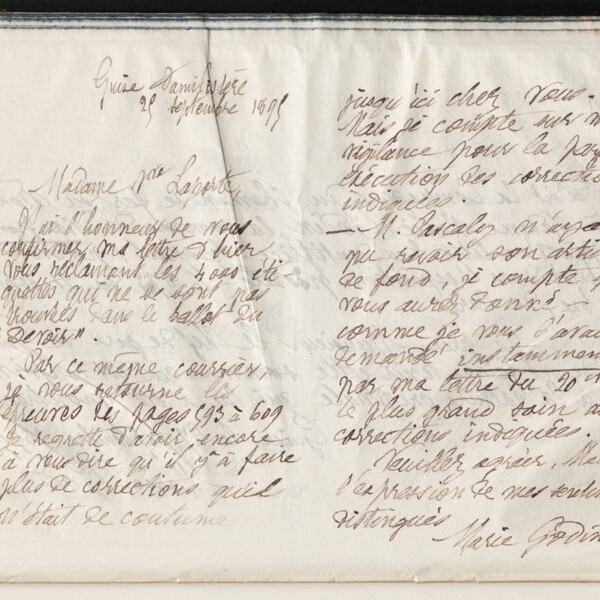 Guise Familistère
25 septembre 1895
Madame Vve Laporte,
J'ai l'honneur de vous
confirmer ma lettre d'hier
vous réclamant les 4000 éti-
quettes qui ne se sont pas
trouvées dans le ballot du
"Devoir".
Par ce même courrier,
je vous retourne les
épreuves des pages 593 à 609
Je regrette d'avoir encore
à vous dire qu'il y a à faire
plus de corrections qu'il
n'était de coutume
jusqu'ici chez vous.
Mais je compte sur
vigilance pour la
exécution des correction
indiquées.
— M. Pascaly n'aya
pu revoir son arti
de fond, je compte
vous aurez donné —
comme je vous l'avai
demandé instammen
par ma lettre du 20
le plus grand soin a
corrections indiquées.
Veuillez agréer, Ma
l'expression de mes senti
distingués
Marie Godin